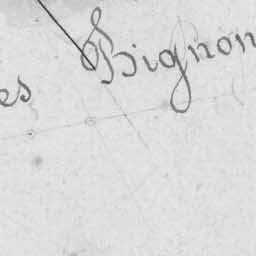 es Bignon